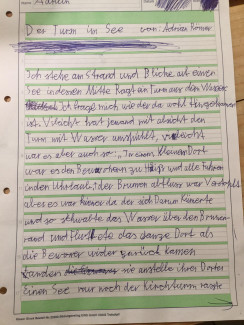 Adrian
Der Turm im See von: Adrian Römer
Ich stehe am Strand und Blicke auf einen
See indessen Mitte Ragt ein Turm aus den Wasser
Ich frage mich wie der da wohl hingekommen
ist. Vieleicht hat jemand mit absicht den
Turm mit Wasser umspühlt, vieleicht
war es aber auch so: „In einem kleinem Dorf
war es den Bewohnern zu heiß und alle fuhren
in den Uhrlaub, der Brunnen abfluss war Verstopft
aber es war keiner da der sich Darum kümerte
und so schwabte das Wasser über den Brunnen
rand und flutete das ganze Dorf als
die Bewoner wieder zurück kamen
fanden sie anstelle ihrer Dorfes
einen See nur noch der Kirchturm ragte